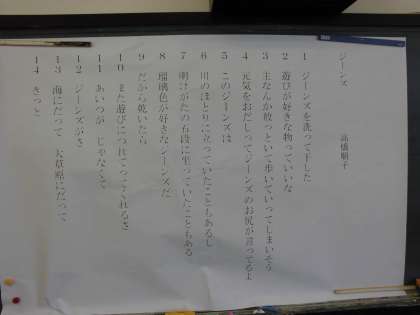 ジーンズ
高橋順子
1 ジーンズを洗って干した
2 遊びが好きな物っていいな
3 主なんか放っといて歩いていってしまいそう
4 元気をおだしってジーンズのお尻が言ってるよ
5 このジーンズは
6 川のほとりに立っていたこともあるし
7 明けがたの石段に坐っていたこともある
8 瑠璃色が好きなジーンズだ
9 だから乾いたら
10 また遊びにつれてってくれるさ
11 あいつが じゃなくて
12 ジーンズがさ
13 海にだって 大草原にだって
14 きっと